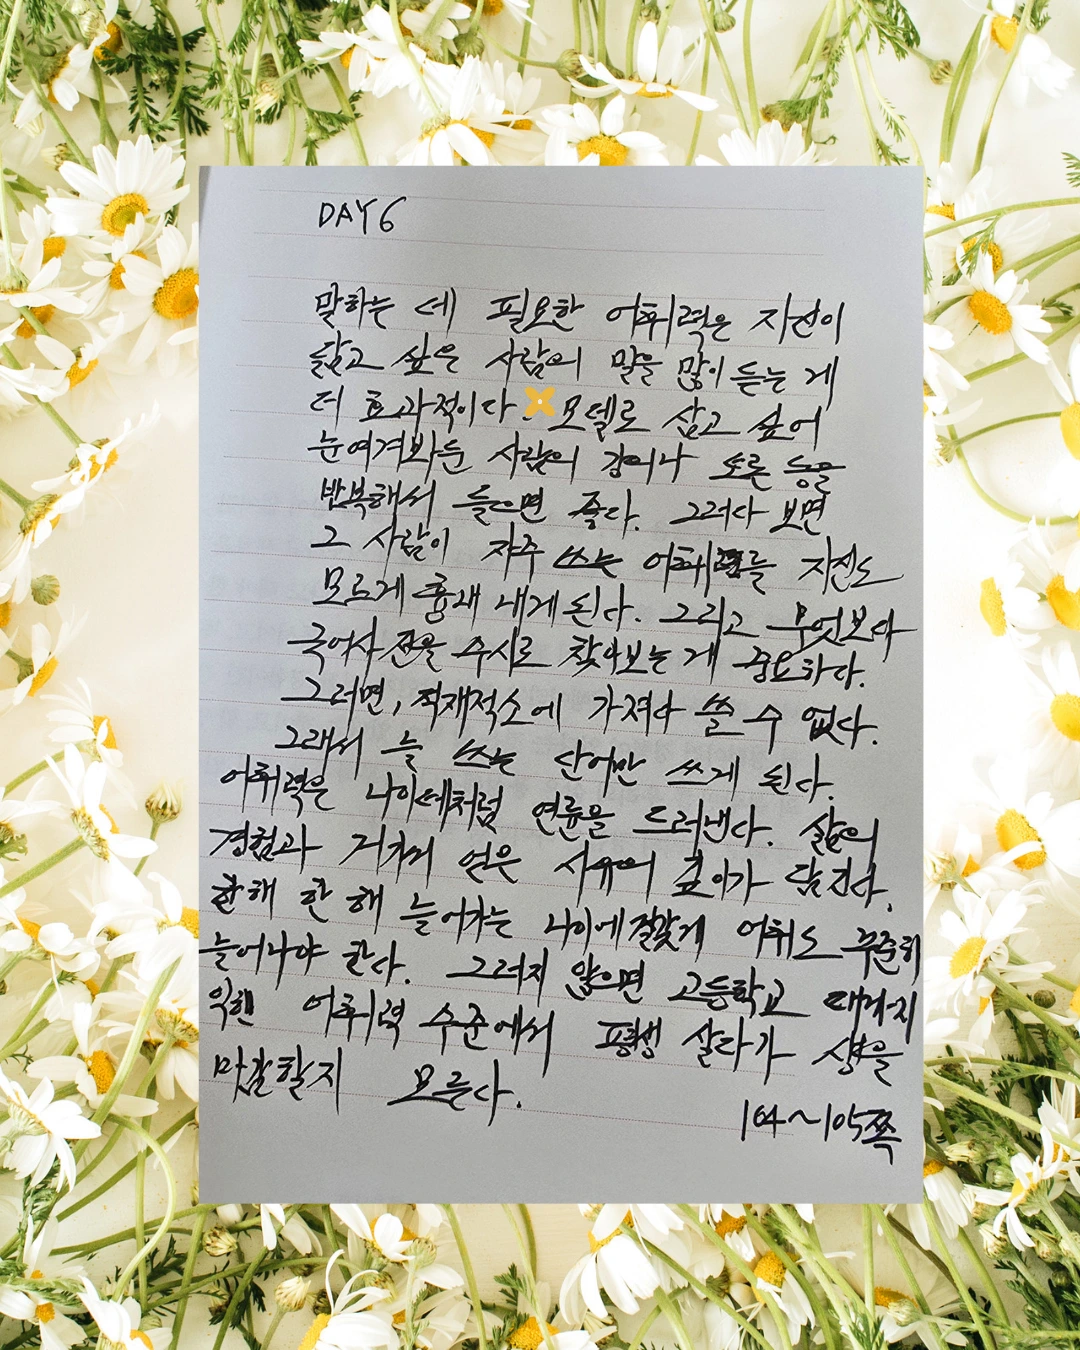 DAY 6
말하는 데 필요한 어휘력은 자신이
닮고 싶은 사람의 말을 많이 듣는 게
더 효과적이다. 모델로 삼고 싶어
눈여겨봐둔 사람의 강의나 토론 등을
반복해서 들으면 좋다. 그러다 보면
그 사람이 자주 쓰는 어휘력을 자신도
모르게 흉내 내게 된다. 그리고 무엇보다
국어사전을 수시로 찾아보는 게 중요하다.
그러면, 적재적소에 가져다 쓸 수 없다.
그래서 늘 쓰는 단어만 쓰게 된다.
어휘력은 나이테처럼 연륜을 드러낸다. 삶의
경험과 거기서 얻은 사유의 깊이가 담긴다.
한 해 한 해 늘어가는 나이에 걸맞게 어휘도 꾸준히
늘어나야 한다. 그러지 않으면 고등학교 때까지
익힌 어휘력 수준에서 평생 살다가 생을
마감할지 모른다.
104~105쪽